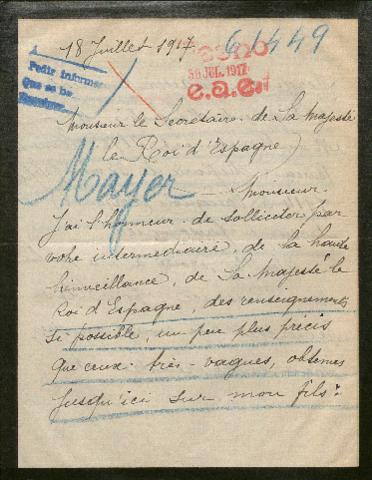 18 Juillet 1917
61449
30 JUL. 1917
e.a.e.
Pedir informes
Que se ha
Monsieur le Secrétaire de Sa Majesté
le Roi d'Espagne
Mayer
Monsieur
J'ai l'honneur de solliciter par
votre intermédiaire, de la haute
bienveillance, de Sa Majesté le
Roi d'Espagne, des renseignements
si possible, un peu plus précis
que ceux très-vagues, obtenus
jusqu'ici sur mon fils: